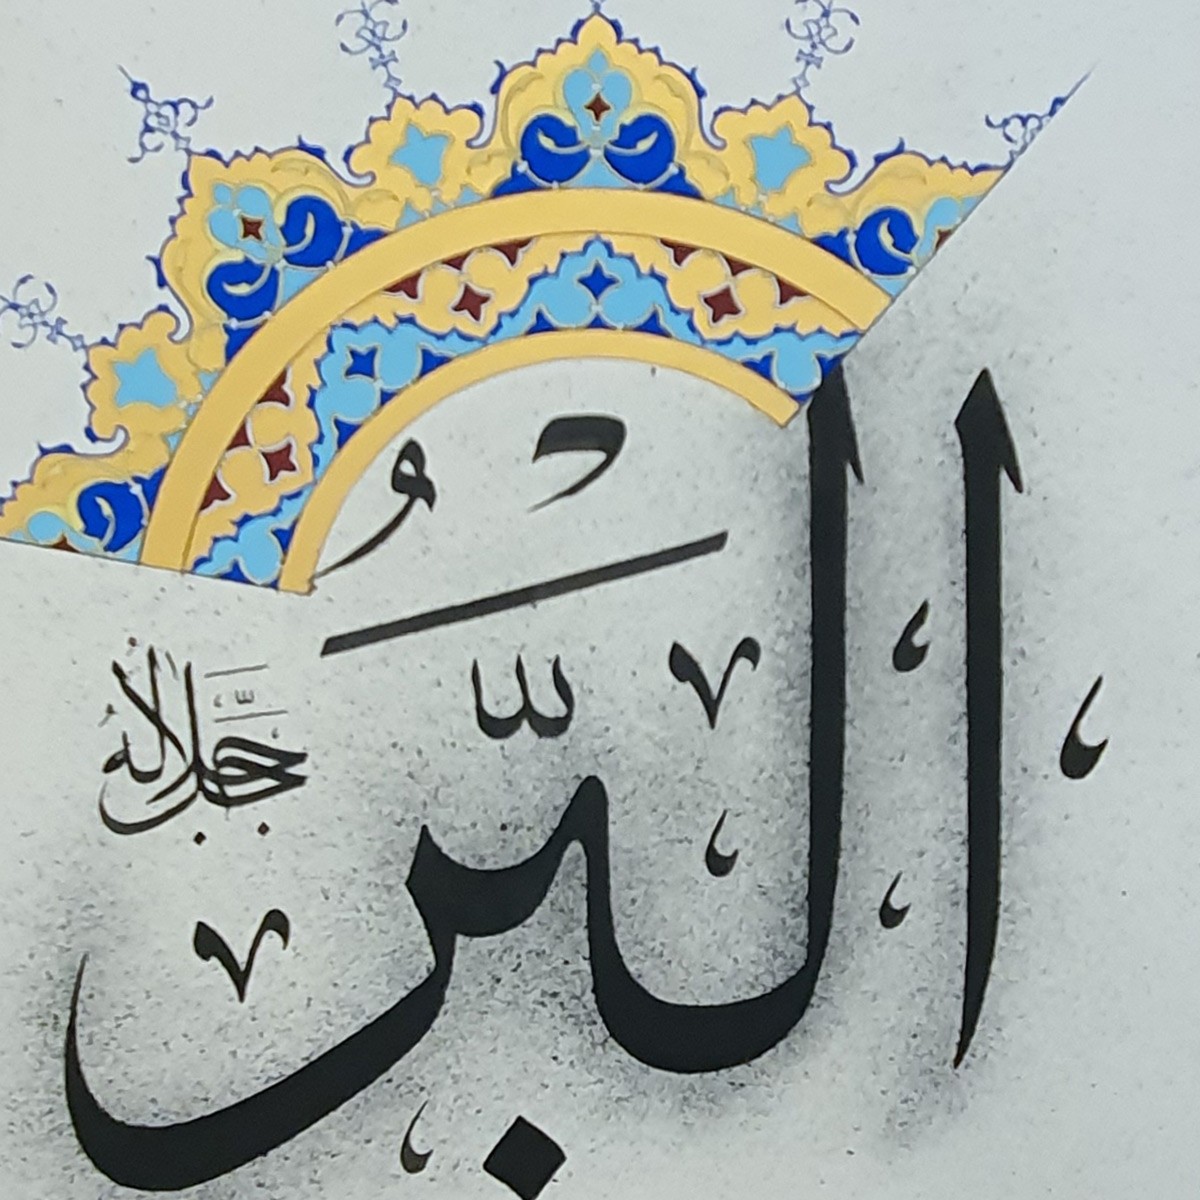 البرّ
جلّ جلاله